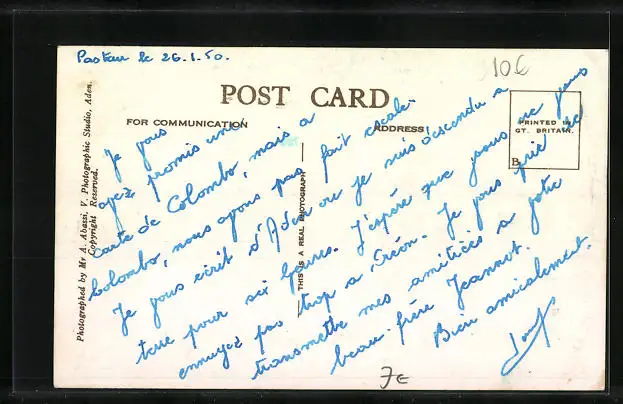 Pasteur le 26.1.50.
10€
POST CARD
FOR COMMUNICATION
ADDRESS
PRINTED IN
GT. BRITAIN.
B
Photographed by Mr A. Abassi, V. Photographic Studio, Aden.
Copyright Reserved.
THIS IS A REAL PHOTOGRAPH
Je vous
avez promis une
carte de Colombo, mais a
Colombo, nous avons pas fait escale.
Je vous ecrit d'Aden ou je suis descendu a
terre pour six heures. J'espère que vous ne vous
ennuyez pas trop a Créon. Je vous prie de
transmettre mes amitiés a votre
beau-frère Jeannot.
Bien amicalement.
7€